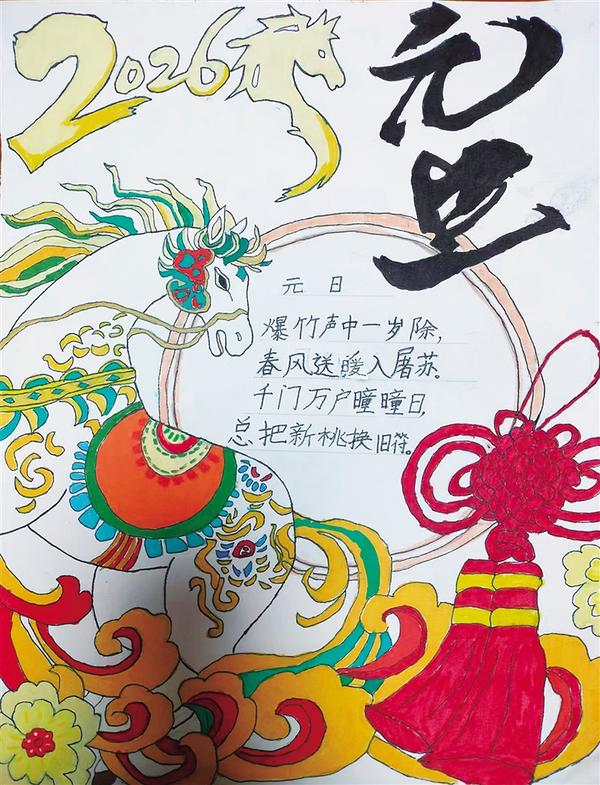 2026
元旦
元日
爆竹声中一岁除，
春风送暖入屠苏。
千门万户曈曈日，
总把新桃换旧符。